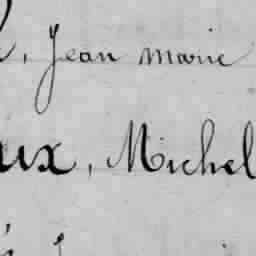 , Jean marie
aux, Michel